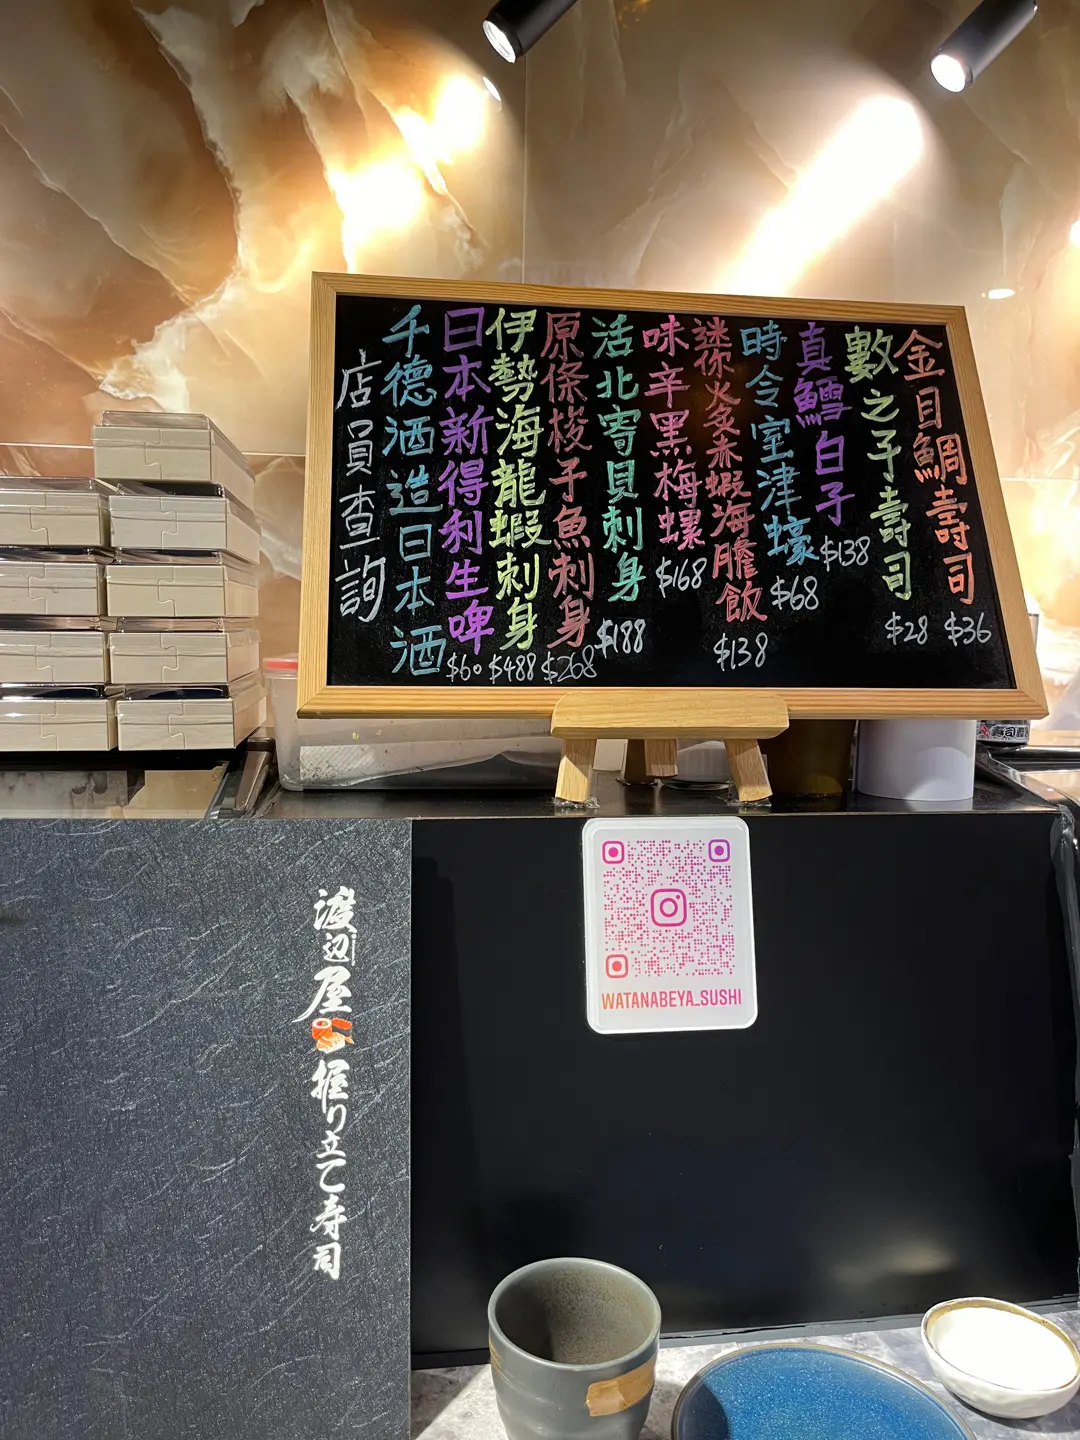 金目鯛壽司 $36
數之子壽司 $28
真鱈白子 $138
時令室津蠔 $68
迷你炙赤蝦海膽飯 $138
味辛黑梅螺 $168
活北寄貝刺身 $188
原條梭子魚刺身 $268
伊勢海龍蝦刺身 $488
日本新得利生啤 $60
千德酒造日本酒
店員查詢
渡辺屋
握り立て寿司
WATANABEYA_SUSHI
壽司